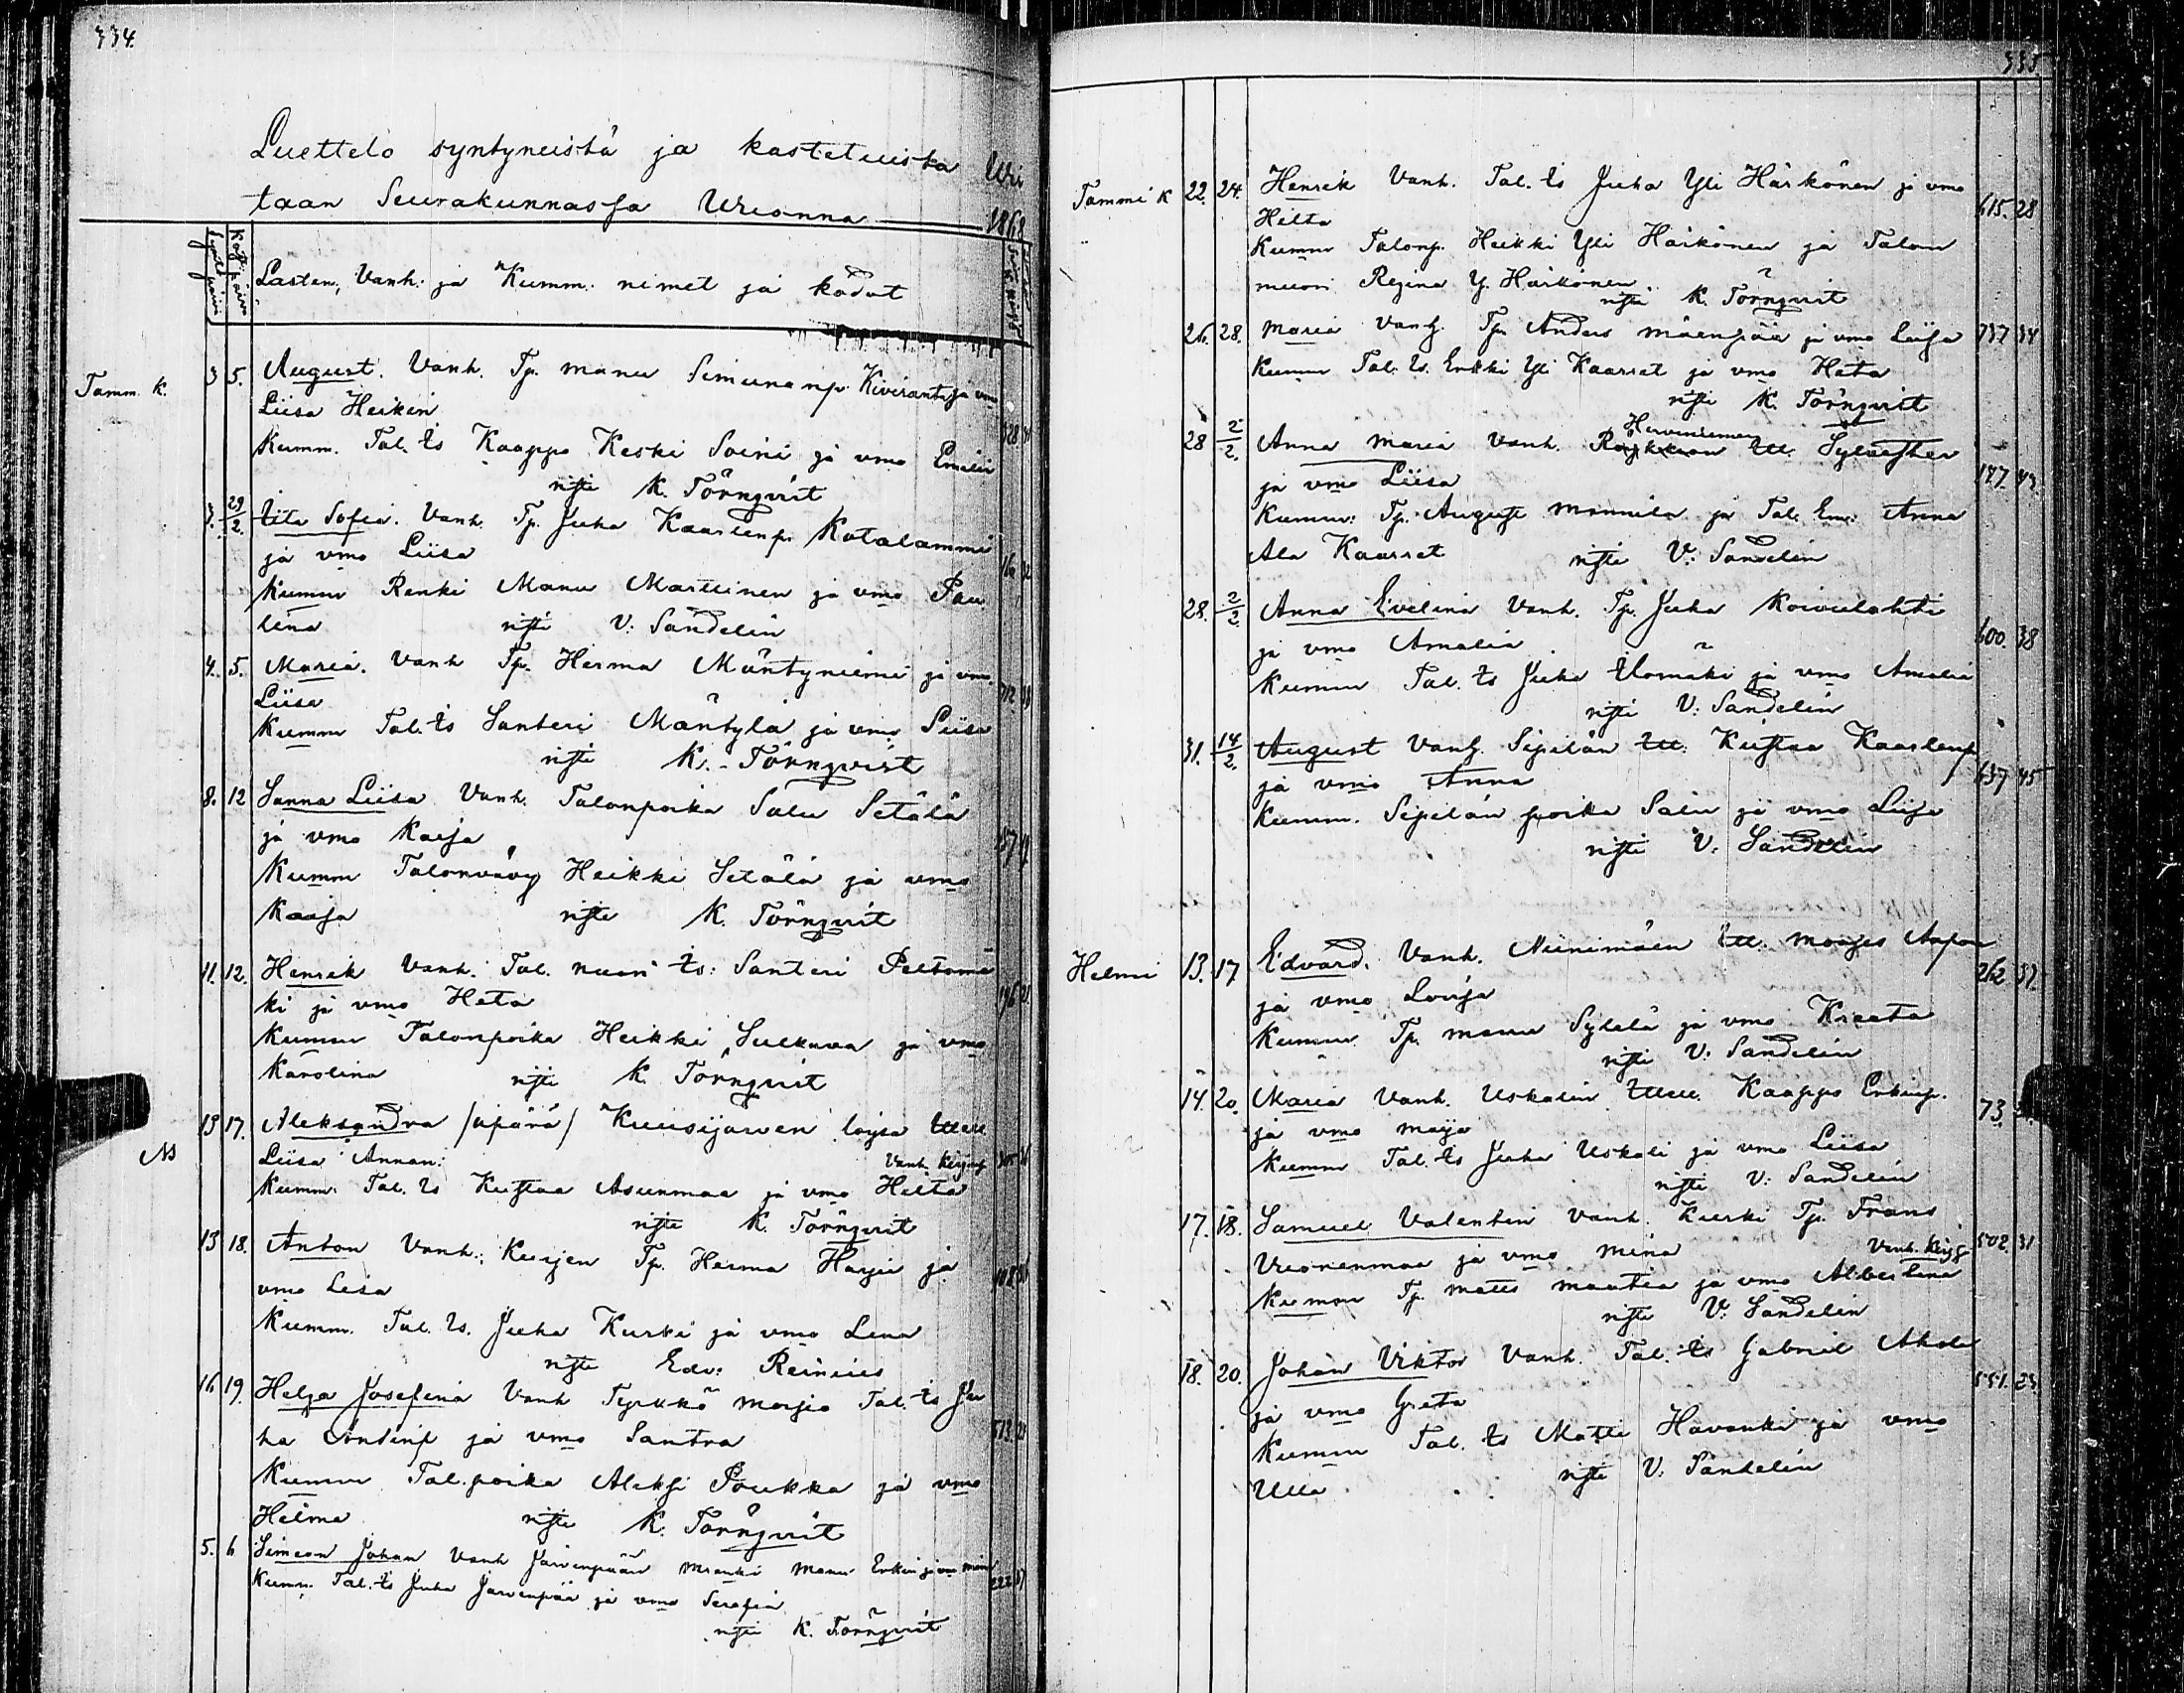 334.
Luettelo syntyneistä ja kastetuista Uri
taan Seurakunnassa Wuonna 1868
Lasten, Vanh. ja Kumm. nimet ja kodot
Tamm. K. 3 5. August. Vanh. Tp. Manu Simunanp. Kiviranta ja vmo
Liisa Heikin
Kumm. Tal. ts Kaappo Keski Soini ja vmo Emilia
risti K. Törnqvist
3. 29/2. Iita Sofia. Vanh. Tp. Juha Kaarlenp. Katalammi
ja vmo Liisa
Kumm Renki Manu Marttinen ja vmo Pau
lina risti V: Sandelin
4. 5. Maria. Vanh Tp. Herma Mäntyniemi ja vmo
Liisa
Kumm Tal. ts Santeri Mäntylä ja vmo Liisa
risti K. Törnqvist
8. 12 Sanna Liisa Vanh. Talonpoika Salu Setälä
ja vmo Kaija
Kumm Talonvävy Heikki Setälä ja vmo
Kaaja risti K. Törnqvist
11. 12. Henrik Vanh. Tal. nuori ts: Santeri Peltomä
ki ja vmo Heta
Kumm Talonpoika Heikki Sulkava ja vmo
Karolina risti K. Törnqvist
13 17. Aleksandra /äpärä/ Kuusijärven löysä
Liisa Annan:
Kumm. Tal. ts Kustaa Asunmaa ja vmo Helta
risti K. Törnqvist
13 18. Anton Vanh. Kurjen Tp. Herma Harju ja
vmo Lisa
Kumm. Tal. ts. Juha Kurki ja vmo Lena
risti Edv: Reinius
16 19. Helga Josefina Vanh Tyrkkö Tal. ts Ju
ha Antinp ja vmo Santra
Kumm Tal. poika Aleksi Poukka ja vmo
Helma risti K. Törnqvist
5. 6 Simeon Johan Vanh Järvenpään Manu Erkin ja vmo
Kumm. Tal. ts Juha Järvenpää ja vmo Serafia
risti K. Törnqvist
335.
Tammi K 22. 24. Henrik Vanh. Tal. ts Juha Yli Härkönen ja vmo 615. 28
Hilta
Kumm Talonp. Heikki Yli Härkönen ja Talon
muori Regina Y. Härkönen
risti K. Törnqvist
26. 28. Maria Vanh. Tp. Anders Mäenpää ja vmo Liisa 737 34
Kumm Tal. ts. Erkki Yli Kaarret ja vmo Heta
risti K. Törnqvist
28 2/2. Anna Maria Vanh. Sylvester
ja vmo Liisa 147. 43.
Kumm: Tp. August Mannila ja Tal. Em: Anna
Ala Kaarret risti V: Sandelin
28. 2/2 Anna Evelina Vanh. Tp. Juha Koivulahti
ja vmo Amalia 600. 38
Kumm Tal. ts Juha Ilomäki ja vmo Amalia
risti V: Sandelin
31. 14/2. August Vanh. Sipilän Kustaa Kaarlenp
ja vmo Anna 637 45
Kumm. Sipilän poika Salu ja vmo Liisa
risti V: Sandelin
Helmi 13. 17 Edvard. Vanh. Niinimäen Moses Aapon 262 37.
ja vmo Lovisa
Kumm Tp. Manu Sylelä ja vmo Kreeta
risti V: Sandelin
14. 20. Maria Vanh. Uskalin Kaappo Erkinp. 73.
ja vmo Maija
Kumm Tal. ts Juha Uskali ja vmo Liisa
risti V: Sandelin
17. 18. Samuel Valentin Vanh. Kurki Tp. Frans 502. 31
Vuorenmaa ja vmo Mina
Kumm Tp. Matts Mantia ja vmo Albertina
risti V: Sandelin
18. 20. Johan Viktor Vanh. Tal. ts Gabriel Ahola 551. 23
ja vmo Greta
Kumm Tal. ts Matti Havanki ja vmo
Ulla risti V: Sandelin